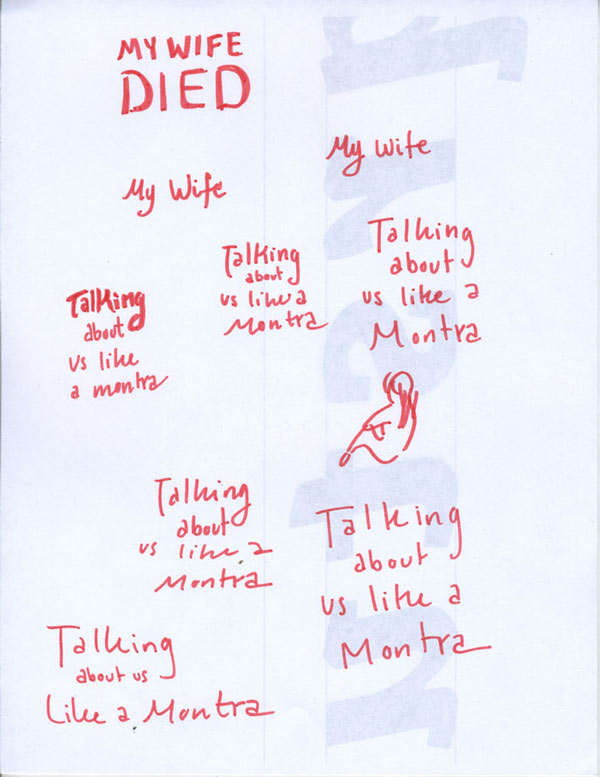 MY WIFE
DIED
My Wife
My Wife
Talking
about
us like a
Montra
Talking
about
us like a
Montra
Talking
about
us like
a montra
Talking
about
us like a
Montra
Talking
about
us like a
Montra
Talking
about us
Like a Montra